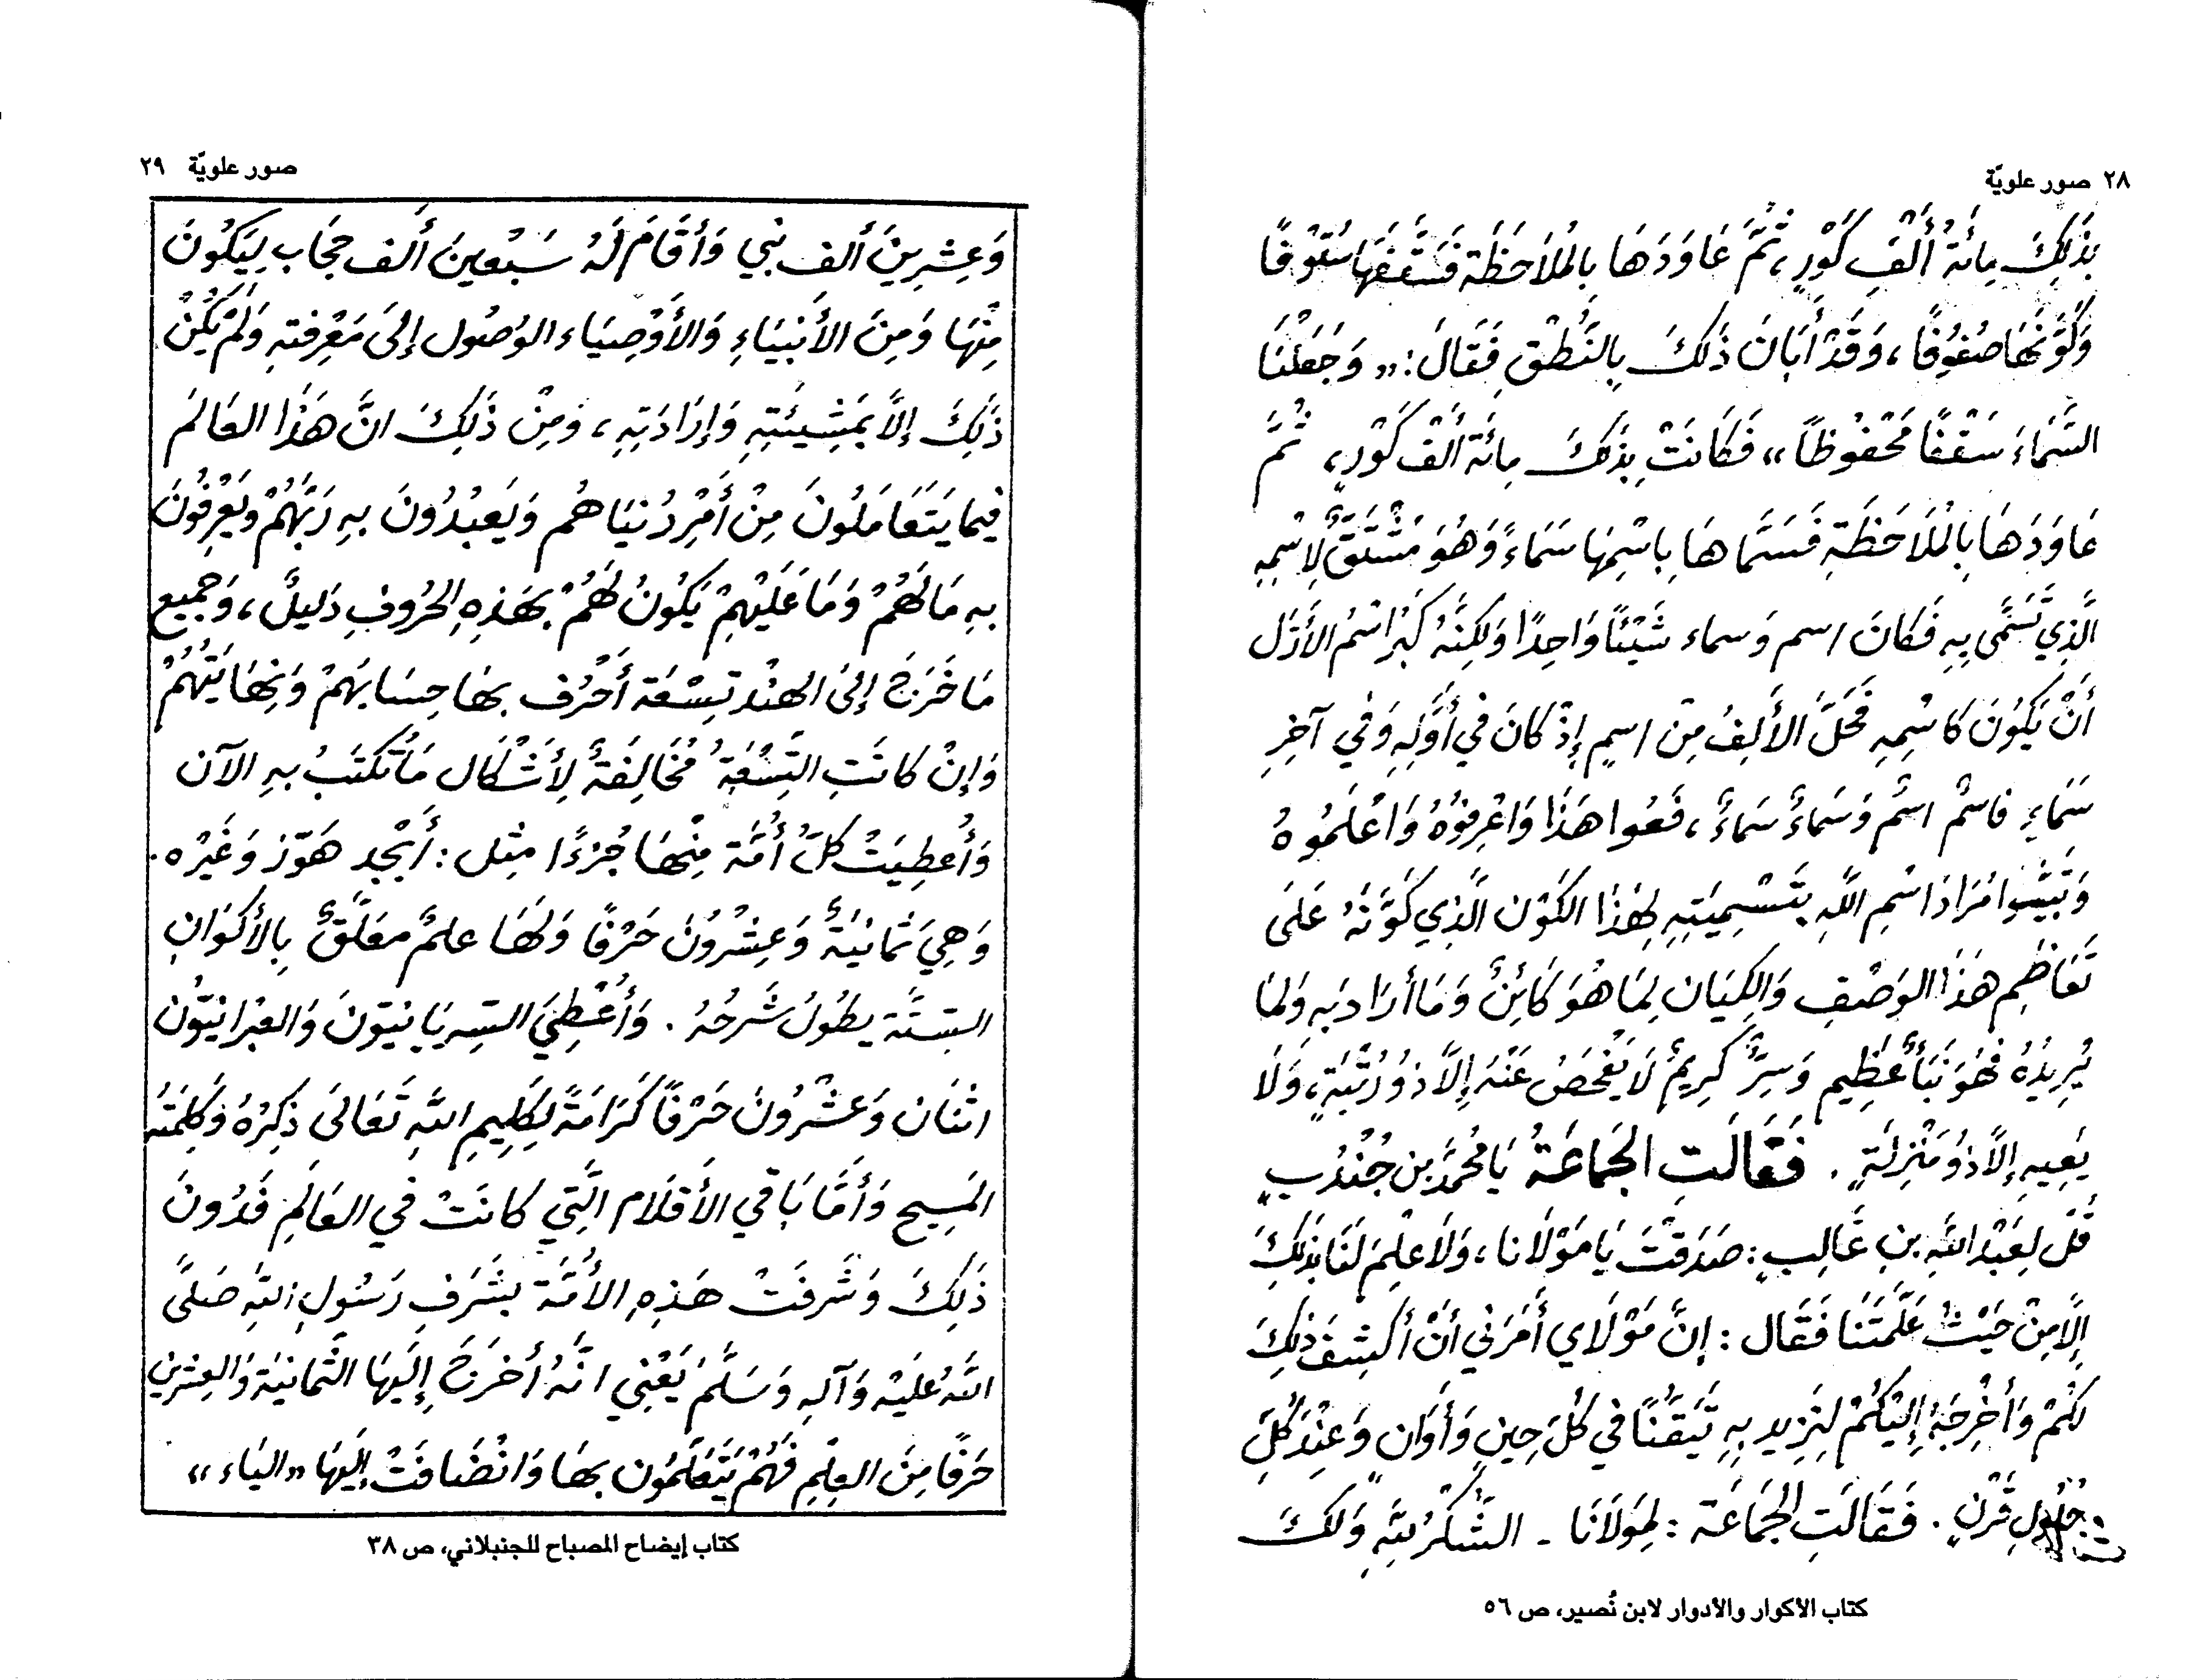 ٢٨ صور علويّة
بِذَلِكَ مِائَةُ أَلْفِ كَوْرٍ، ثُمَّ عَاوَدَهَا بِالْمُلاَحَظَةِ فَسَقَّفَهَا سُقُوفًا
وَكَوَّنَهَا صُفُوفًا، وَقَدْ أَبَانَ ذَلِكَ بِالنُّطْقِ فَقَالَ: «وَجَعَلْنَا
السَّمَاءَ سَقْفًا مَحْفُوظًا» فَكَانَتْ بِذَلِكَ مِائَةَ أَلْفِ كَوْرٍ، ثُمَّ
عَاوَدَهَا بِالْمُلَاحَظَةِ فَسَمَّاهَا بِاسْمِهَا سَمَاءً وَهُوَ مُشْتَقٌّ لِاسْمِهِ
الَّذِي تَسَمَّى بِهِ فَكَانَ اسم وَسماء شَيْئًا وَاحِدًا وَلَكِنَّهُ كَبُرَ اسْمُ الأَزَل
أَنْ يَكُونَ كَاسْمِهِ فَحَلَّ الأَلِفُ مِنْ اسمٍ إِذْ كَانَ فِي أَوَّلِهِ وَفِي آخِرِ
سَمَاءٍ فَاسْمٌ اسْمٌ وَسَمَاءٌ سَمَاءٌ، فَعُوا هَذَا وَاعْرِفُوهُ وَاعْلَمُوهُ
وَتَبَيَّنُوا مُرَادَ اسْمِ اللَّهِ بِتَسْمِيَتِهِ لِهَذَا الكَوْنِ الَّذِي كَوَّنَهُ عَلَى
تَعَاظُمِ هَذَا الوَصْفِ وَالكِيَانِ لِمَا هُوَ كَائِنٌ وَمَا أَرَادَ بِهِ وَلِمَا
يُرِيدُهُ فَهُوَ نَبَأٌ عَظِيم وَسِرٌّ كَرِيمٌ لَا يَفْحَصُ عَنْهُ إِلَّا ذُو رُتْبَةٍ، وَلَا
يَعِيهِ إِلَّا ذُو مَنْزِلَةٍ. فَقَالَتِ الجَمَاعَةُ يَا مُحَمَّدُ بن جُنْدُبٍ
قُلْ لِعَبْدِ اللَّهِ بنِ غَالِبٍ: صَدَقْتَ يَا مَوْلَانَا، وَلَا عِلْمَ لَنَا بِذَلِكَ
إِلَّا مِنْ حَيْثُ عَلَّمْتَنَا فَقَال: إِنَّ مَوْلَايَ أَمَرَنِي أَنْ أَكْشِفَ ذَلِكَ
لَكُمْ وَأُخْرِجَهُ إِلَيْكُمْ لِنَزِيد بِهِ تَيَقُّنًا فِي كُلِّ حِينٍ وَأَوَانٍ وَعِنْدَ كُلِّ
حُلُولِ قَرْنٍ. فَقَالَتِ الجَمَاعَة: لِمَوْلَانَا - الشُّكْرُ لِلَّهِ وَلَكَ
كتاب الأكوار والأدوار لابن نُصير، ص ٥٦
صور علويّة ٢٩
وَعِشْرِينَ أَلف نَبِي وَأَقَامَ لَهُ سَبْعِينَ أَلف حِجَاب لِيَكُونَ
مِنْهَا وَمِنَ الأَنْبِيَاءِ وَالأَوْصِيَاءِ الوُصُول إِلَى مَعْرِفَتِهِ وَلَمْ يَكُنْ
ذَلِكَ إِلَّا بِمَشِيئَتِهِ وَإِرَادَتِهِ، وَمِنْ ذَلِكَ انَّ هَذَا العَالَمَ
فِيمَا يَتَعَامَلُونَ مِنْ أَمْرِ دُنيَاهُم وَيَعبُدُونَ بِهِ رَبَّهُمْ وَيَعْرِفُونَ
بِهِ مَا لَهُمْ وَمَا عَلَيْهِمْ يَكُونُ لَهُمْ بِهَذِهِ الحُرُوفِ دَلِيلٌ، وَجَمِيع
مَا خَرَجَ إِلَى الهِنْد تِسْعَة أَحْرُف بِهَا حِسَابَهُمْ وَنِهَايَتُهُمْ
وَإِنْ كَانَتِ التِّسْعَةُ مُخَالِفَةً لِأَشْكَال مَا تُكتَبُ بِهِ الآن
وَأُعطِيَتْ كلُّ أُمَّة مِنْهَا جُزءًا مِثل: أَبْجد هَوَّز وَغَيْره.
وَهِيَ ثَمَانِيَةٌ وَعِشْرُونَ حَرْفًا وَلَهَا علمٌ معَلَّقٌ بِالأَكْوَانِ
السِّتَّة يطُولُ شَرحُهُ. وَأُعْطِيَ السِّريَانِيّونَ وَالعِبْرانِيّون
اثْنَان وَعِشْرُونَ حَرْفًا كَرَامَةً لِكَلِيمِ اللَّهِ تَعَالَى ذِكْرُهُ وَكَلِمَتُهُ
المَسِيح وَأَمَّا بَاقِي الأَقْلَام الَّتِي كَانَتْ فِي العَالَمِ فَدُونَ
ذَلِكَ وَشَرفَتْ هَذِهِ الأُمَّة بِشَرَفِ رَسُولِ اللَّهِ صَلَّى
اللَّهُ عَلَيْهِ وَآلِهِ وَسَلَّمَ يَعْنِي انَّهُ أَخرَجَ إِلَيْهَا الثَّمانِيَة وَالعِشْرِين
حَرفًا مِنَ العِلْمِ فَهُمْ يَتَعَلَّمُون بِهَا وَانْضَافَتْ إِلَيْهَا «اليَاء»
كتاب إيضاح المصباح للجنبلاني، ص ٣٨